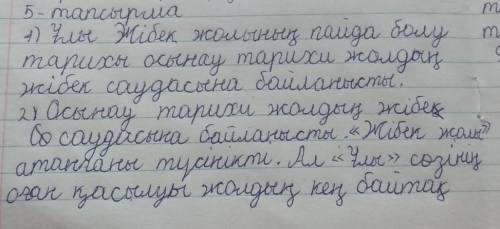 5-тапсырма
1) Ұлы Жібек жолының пайда болу
тарихы осынау тарихи жолдың
жібек саудасына байланысты.
2) Осынау тарихи жолдың жібек
саудасына байланысты «Жібек жолы»
атанғаны түсінікті. Ал «Ұлы» сөзінің
оған қасылуы жолдың кең байтақ